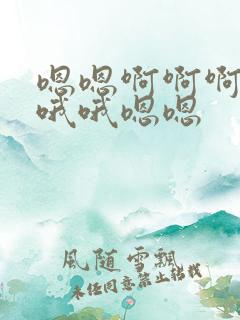 嗯嗯啊啊啊
哦哦嗯嗯
風随雪飄
未经同意禁止转载